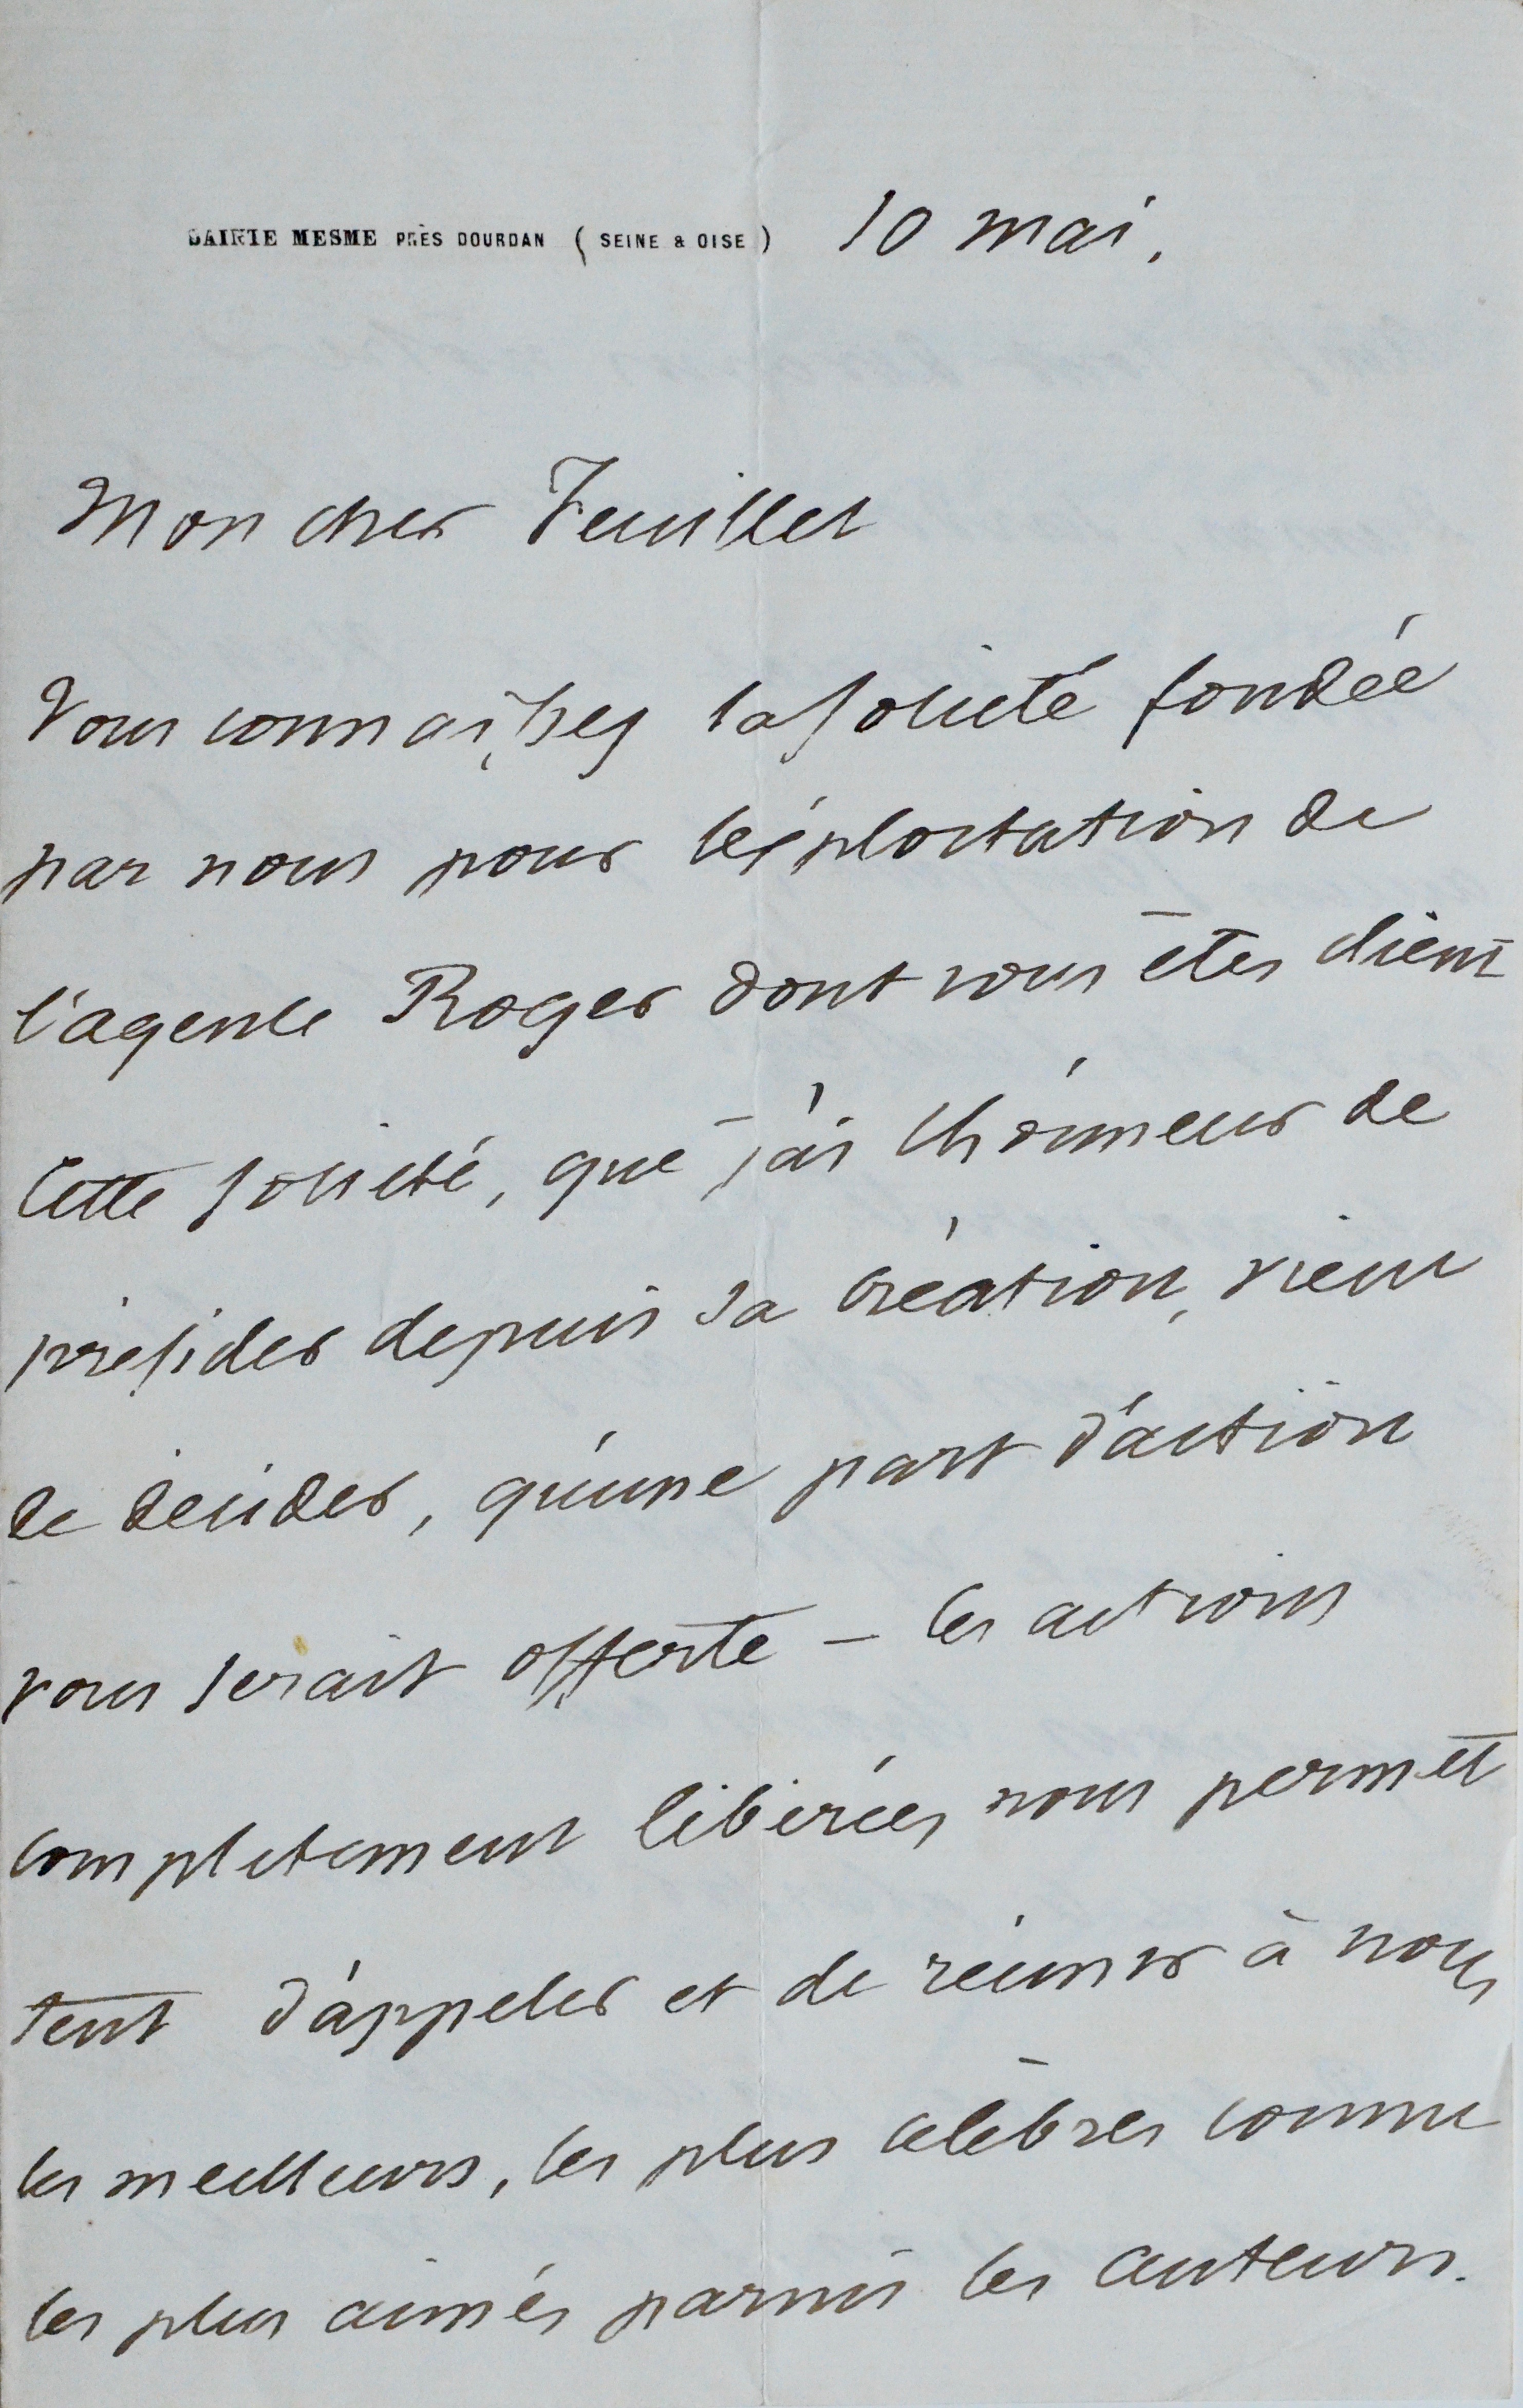 SAINTE MESME PRÈS DOURDAN (SEINE & OISE) 10 mai.
Mon cher Feuillet
Vous connaissez la societé fondée
par nous pour l'exploitation de
l'agence Roger dont vous êtes client
Cette societé, que j'ai l'honneur de
presider depuis sa création, vient
de decider, qu'une part d'action
vous serait offerte – les actions
completement libérées nous permet
tent d'appeler et de réunir à nous
les meilleurs, les plus célèbres comme
les plus aimés parmi les auteurs.